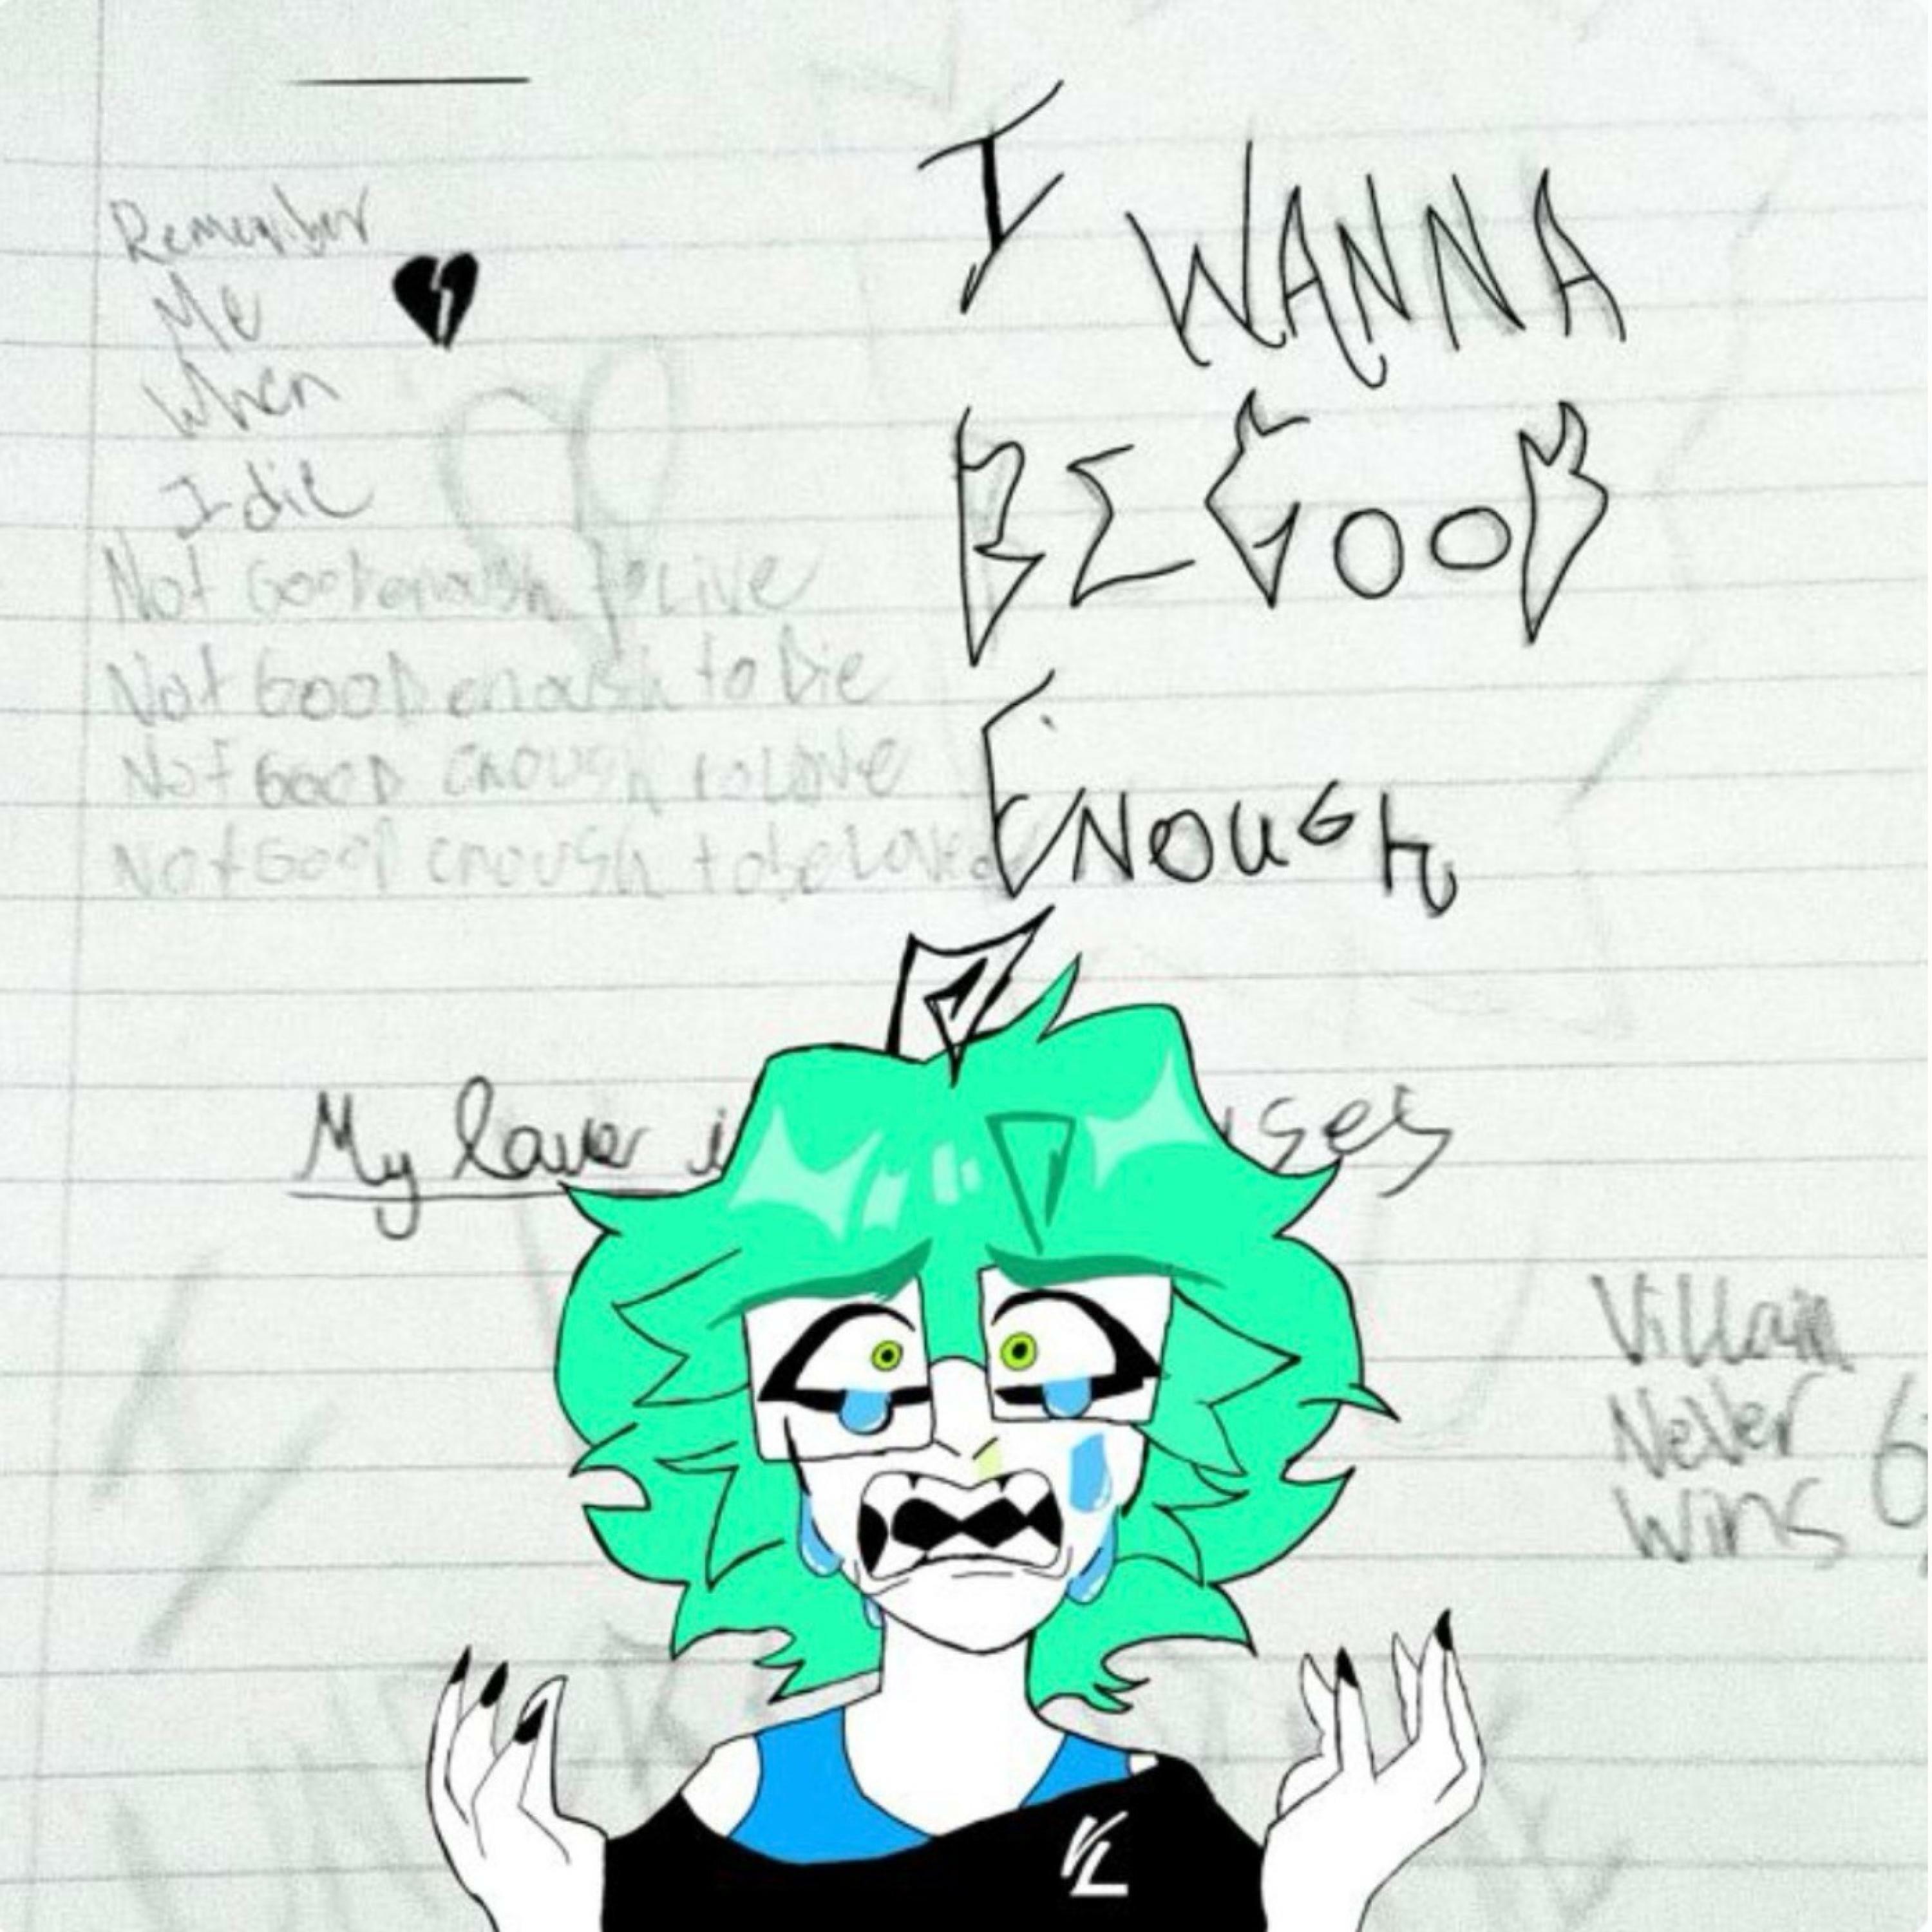 Remember
Me
When
I die
Not Good enough to Live
Not GOOD enough to Die
Not GOOD enough to Love
Not Good enough to be Loved
I WANNA
BE GOOD
ENOUGH
My lover i
uses
Villain
Never
Wins
VL